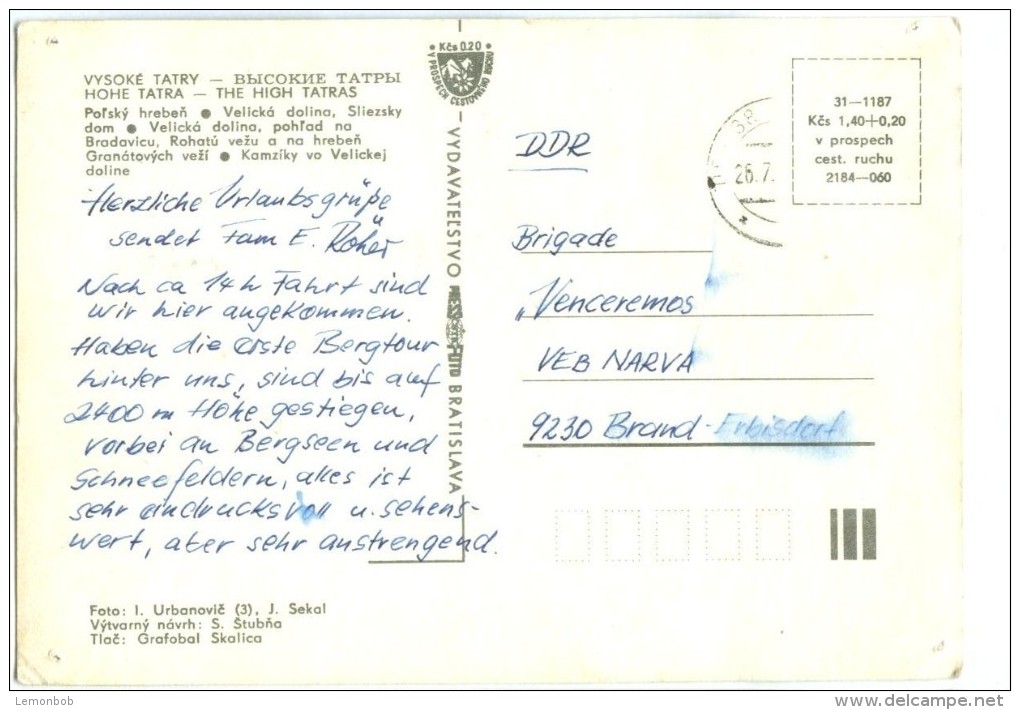 VYSOKÉ TATRY — ВЫСОКИЕ ТАТРЫ
HOHE TATRA — THE HIGH TATRAS
Poľský hrebeň ● Velická dolina, Sliezsky
dom ● Velická dolina, pohľad na
Bradavicu, Rohatú vežu a na hrebeň
Granátových veží ● Kamzíky vo Velickej
doline
Herzliche Urlaubsgrüße
sendet Fam E. Röher
Nach ca 14h Fahrt sind
wir hier angekommen.
Haben die erste Bergtour
hinter uns, sind bis auf
2400 m Höhe gestiegen,
vorbei an Bergseen und
Schneefeldern, alles ist
sehr eindrucksvoll u. sehens-
wert, aber sehr anstrengend.
Foto: I. Urbanovič (3), J. Sekal
Výtvarný návrh: S. Štubňa
Tlač: Grafobal Skalica
• Kčs 0.20 •
V PROSPECH CESTOVNÉHO RUCHU
— VYDAVATEĽSTVO
BRATISLAVA
31—1187
Kčs 1,40+0,20
v prospech
cest. ruchu
2184—060
26.7.
DDR
Brigade
„Venceremos
VEB NARVA
9230 Brand-Erbisdorf
Lemonbob
www.delcampe.net